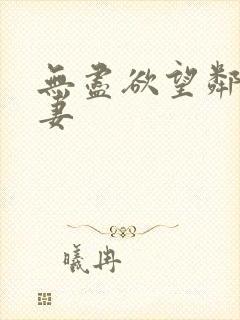 無盡欲望鄰
妻
曦冉